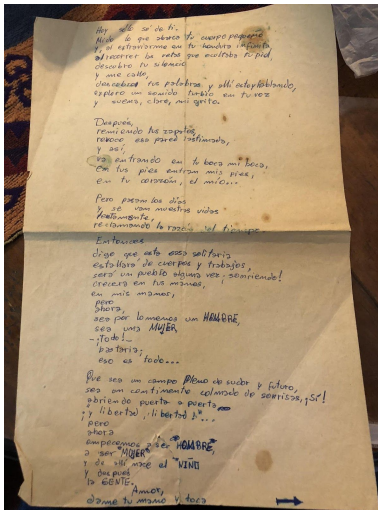 Hoy sólo sé de ti.
Mido lo que abarca tu cuerpo pequeño
y, al extraviarme en tu hondura infinita,
al recorrer los retos que ocultaba tu piel,
descubro tu silencio
y me callo,
tus palabras y allí estoy hablando,
exploro un sonido turbio en tu voz
y suena, claro, mi grito.
Después,
remiendo tus zapatos,
revoco esa pared lastimada,
y así,
va entrando en tu boca mi boca,
en tus pies entran mis pies,
en tu corazón, el mío...
Pero pasan los días
y se van nuestras vidas
lentamente,
reclamando la razón al tiempo.
Entonces
dije que esta casa solitaria
estallará de cuerpos y trabajos,
será un pueblo alguna vez sonriendo!
crecerá en tus manos,
en mis manos,
pero
ahora,
sea por lo menos un HOMBRE,
sea una MUJER
-¡Todo!-
bastaría;
eso es todo...
Que sea un campo pleno de sudor y futuro,
sea un continente colmado de sonrisas, ¡Sí!
abriendo puerta a puerta
¡y libertad, libertad!
pero
ahora
empecemos a ser "HOMBRE",
a ser "MUJER"
y de ahí nace el "NIÑO"
y después
la GENTE.
Amor,
dame tu mano y toca